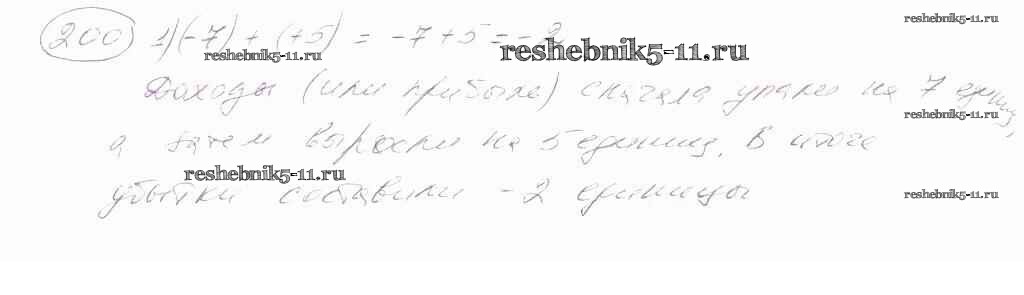 200 1) (-7) + (+5) = -7+5 = -2
Доходы (или прибыль) сначала упали на 7 единиц,
а затем выросли на 5 единиц. В итоге
убытки составили -2 единицы
reshebnik5-11.ru
reshebnik5-11.ru
reshebnik5-11.ru
reshebnik5-11.ru
reshebnik5-11.ru
reshebnik5-11.ru